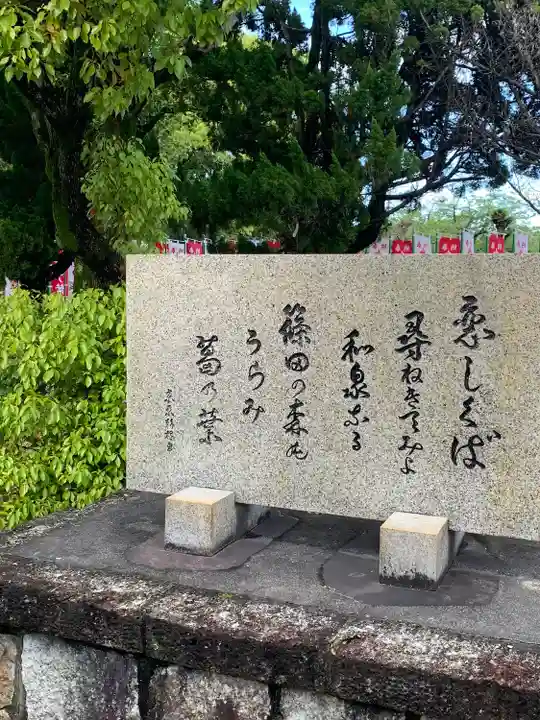 恋しくば
尋ねきてみよ
和泉なる
篠田の森の
うらみ
葛乃葉